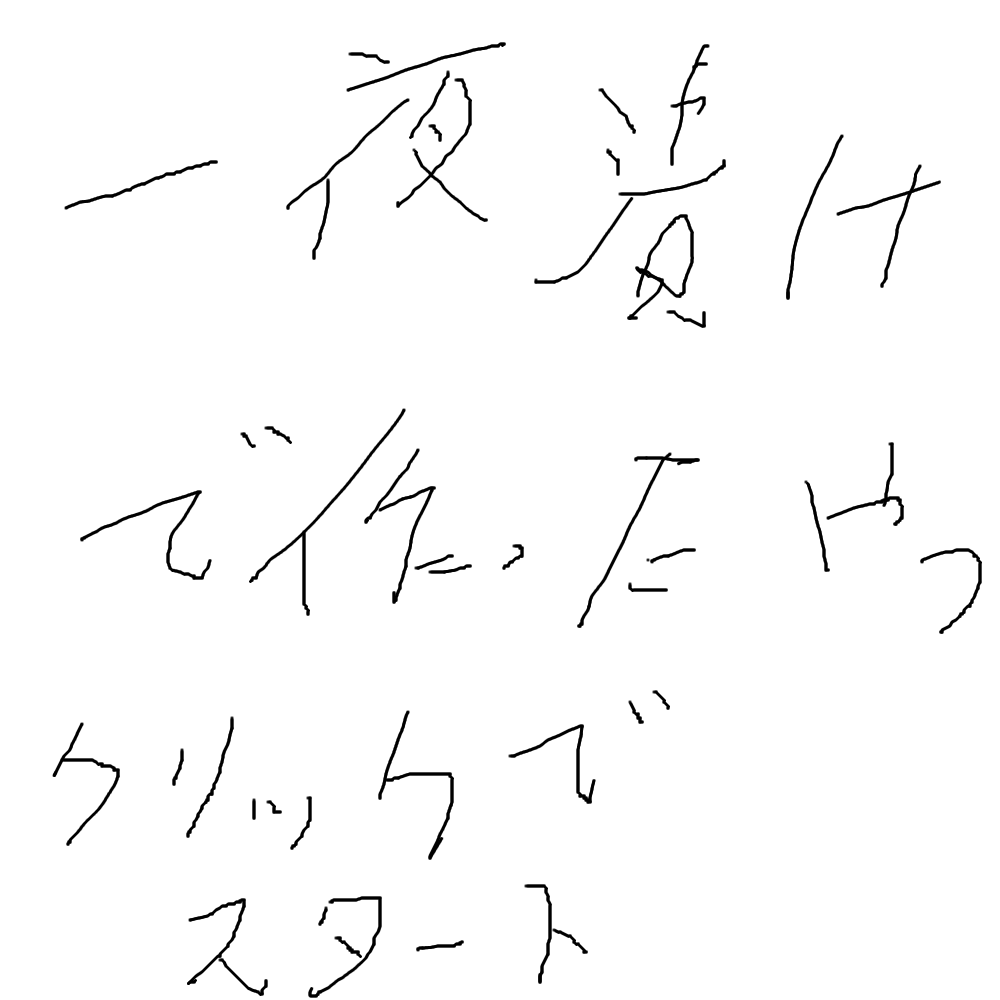 一夜漬け
で作ったやつ
クリックで
スタート